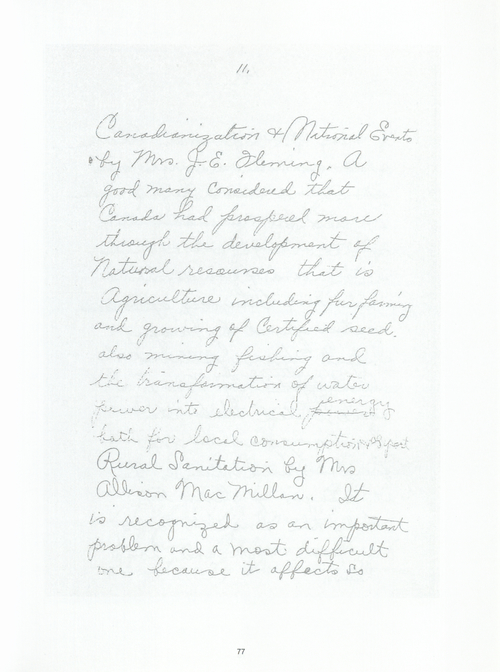 11.
Canadianization & National Events
by Mrs. J. E. Fleming. A
good many considered that
Canada had prospered more
through the development of
Natural resourses that is
Agriculture including fur farming
and growing of Certified seed.
also mining fishing and
the transformation of water
power into electrical energy
both for local consumption & Export
Rural Sanitation by Mrs
Allison MacMillan. It
is recognized as an important
problem and a most difficult
one because it affects so
77